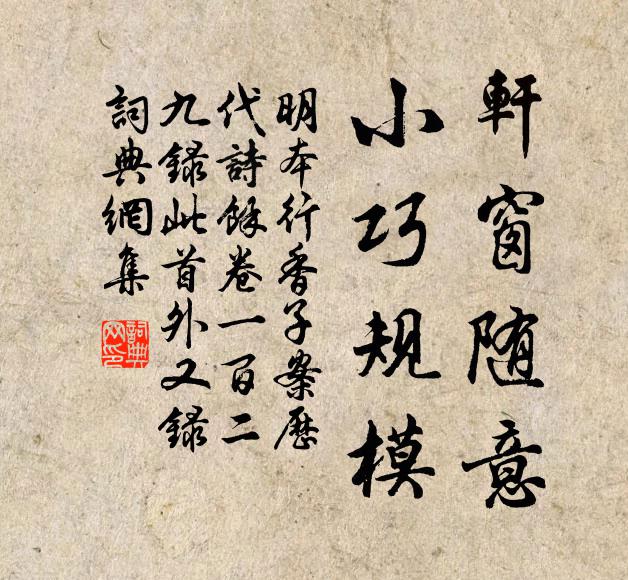 軒窗随意
小巧規模
明本行香子案歷
代詩餘卷一百二
九錄此首外又錄
詞典網集
詞典
网印